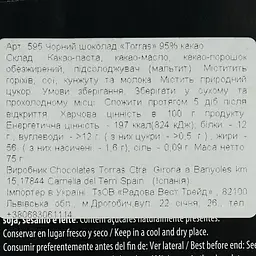 Арт. 595 Чорний шоколад «Torras» 95% какао
Склад: Какао-паста, какао-масло, какао-порошок
обезжирений, підсолоджувач (мальтит). Містить
горіхи, сої, кунжуту та молока. Містить природні
цукор. Умови зберігання: Зберігати у сухому та
прохолодному місці. Спожити протягом 5 діб після
відкриття. Харчова цінність в 100 г продукту:
Енергетична цінність - 197 ккал(824 кДж), білки - 12
г, вуглеводи - >12 г ( з них цукор - >0,5 г), жири -
56, ( з них насичені - 1,6 г), сіль - 0,09 г. Маса нетто
75 г.
Виробник: Chocolates Torras Ctra. Girona a Banyoles km
15,17844 Cornella del Terri Spain. (Іспанія).
Імпортер в Україні: ТзОВ «Радова Вест Трейд» , 82100
Львівська обл., м.Дрогобич,вул. 22 січня, 26, тел.
+380683061114
soja, sésamo e leite. Contém açúcares naturalmente presentes.
Conservar en lugar fresco y seco / Keep in a cool and dry place.
Consumir preferentemente antes del fin de: Ver lateral / Best before end: See